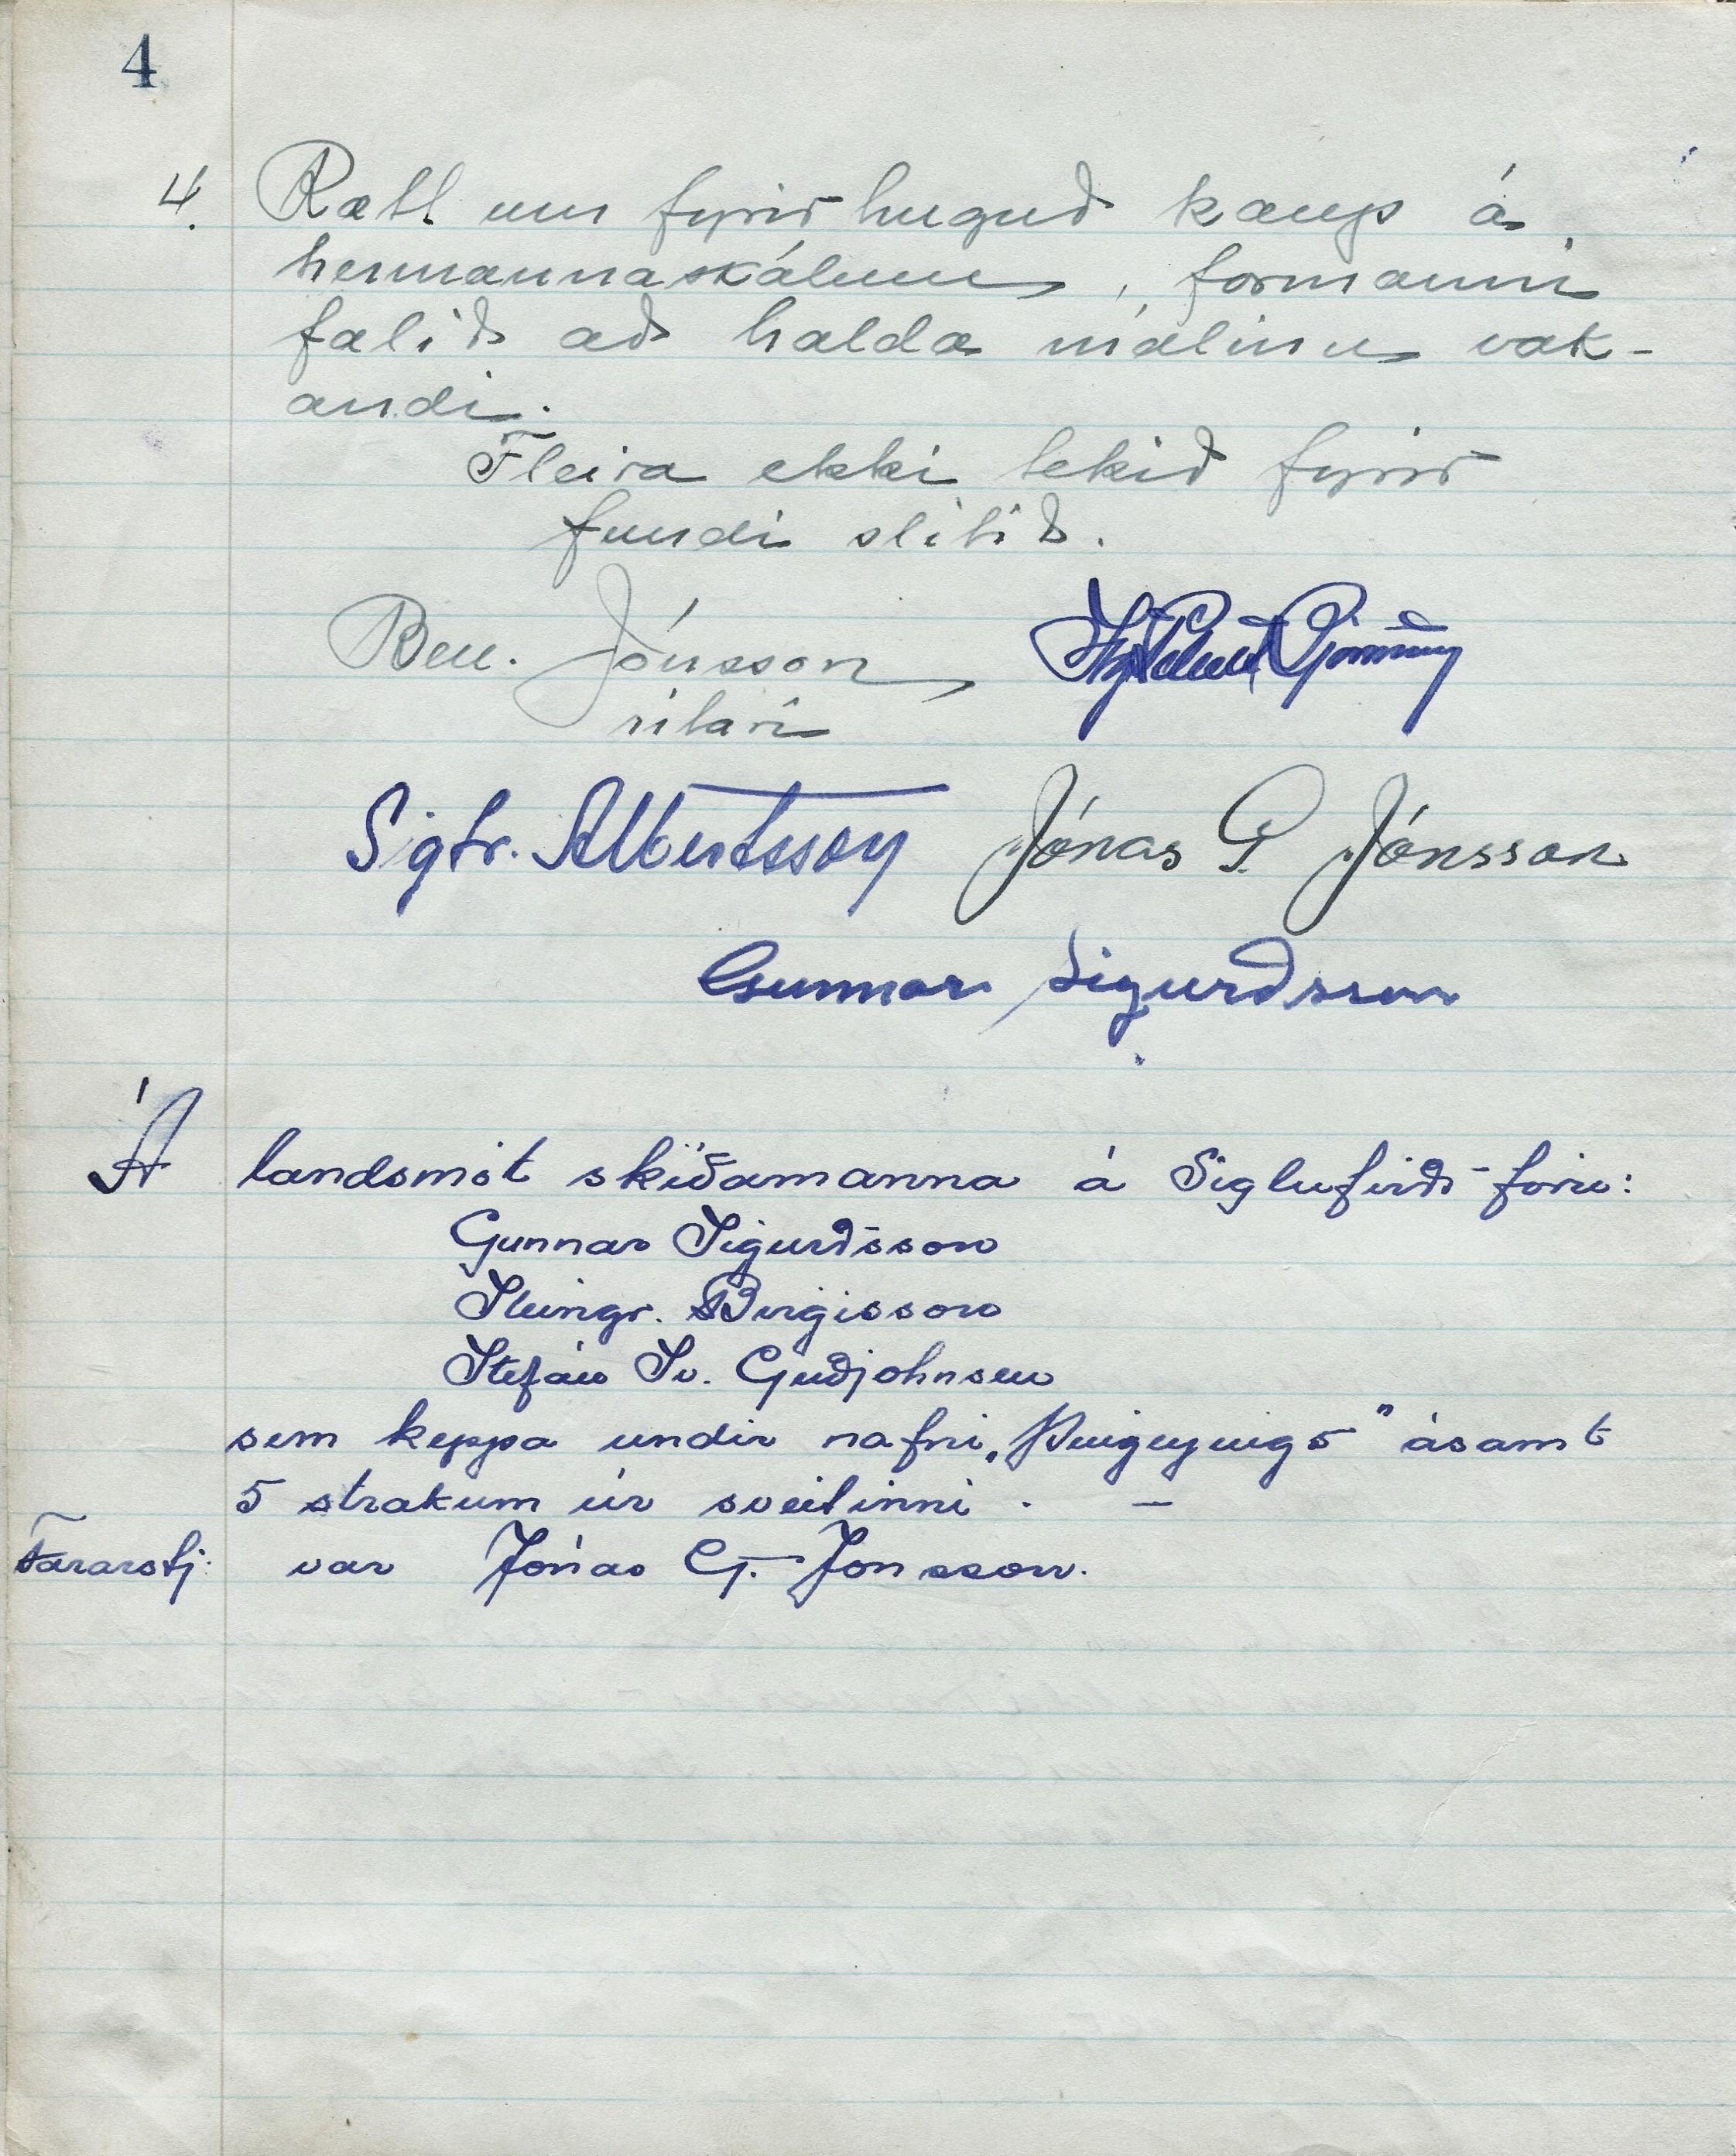 4
4. Rætt um fyrirhuguð kaup á
hermannaskálum, formanni
falið að halda málinu vak-
andi.
Fleira ekki tekið fyrir
fundi slitið.
Ben. Jónsson
ritari
Sigtr. Albertsson Jónas G. Jónsson
Gunnar Sigurðsson
Á landsmót skíðamanna á Siglufirði fóru:
Gunnar Sigurðsson
Steingr. Birgisson
Stefán Sv. Guðjohnsen
sem keppa undir nafni ásamt
5 strakum úr sveitinni. —
Fararstj: var Jónas G. Jónsson.